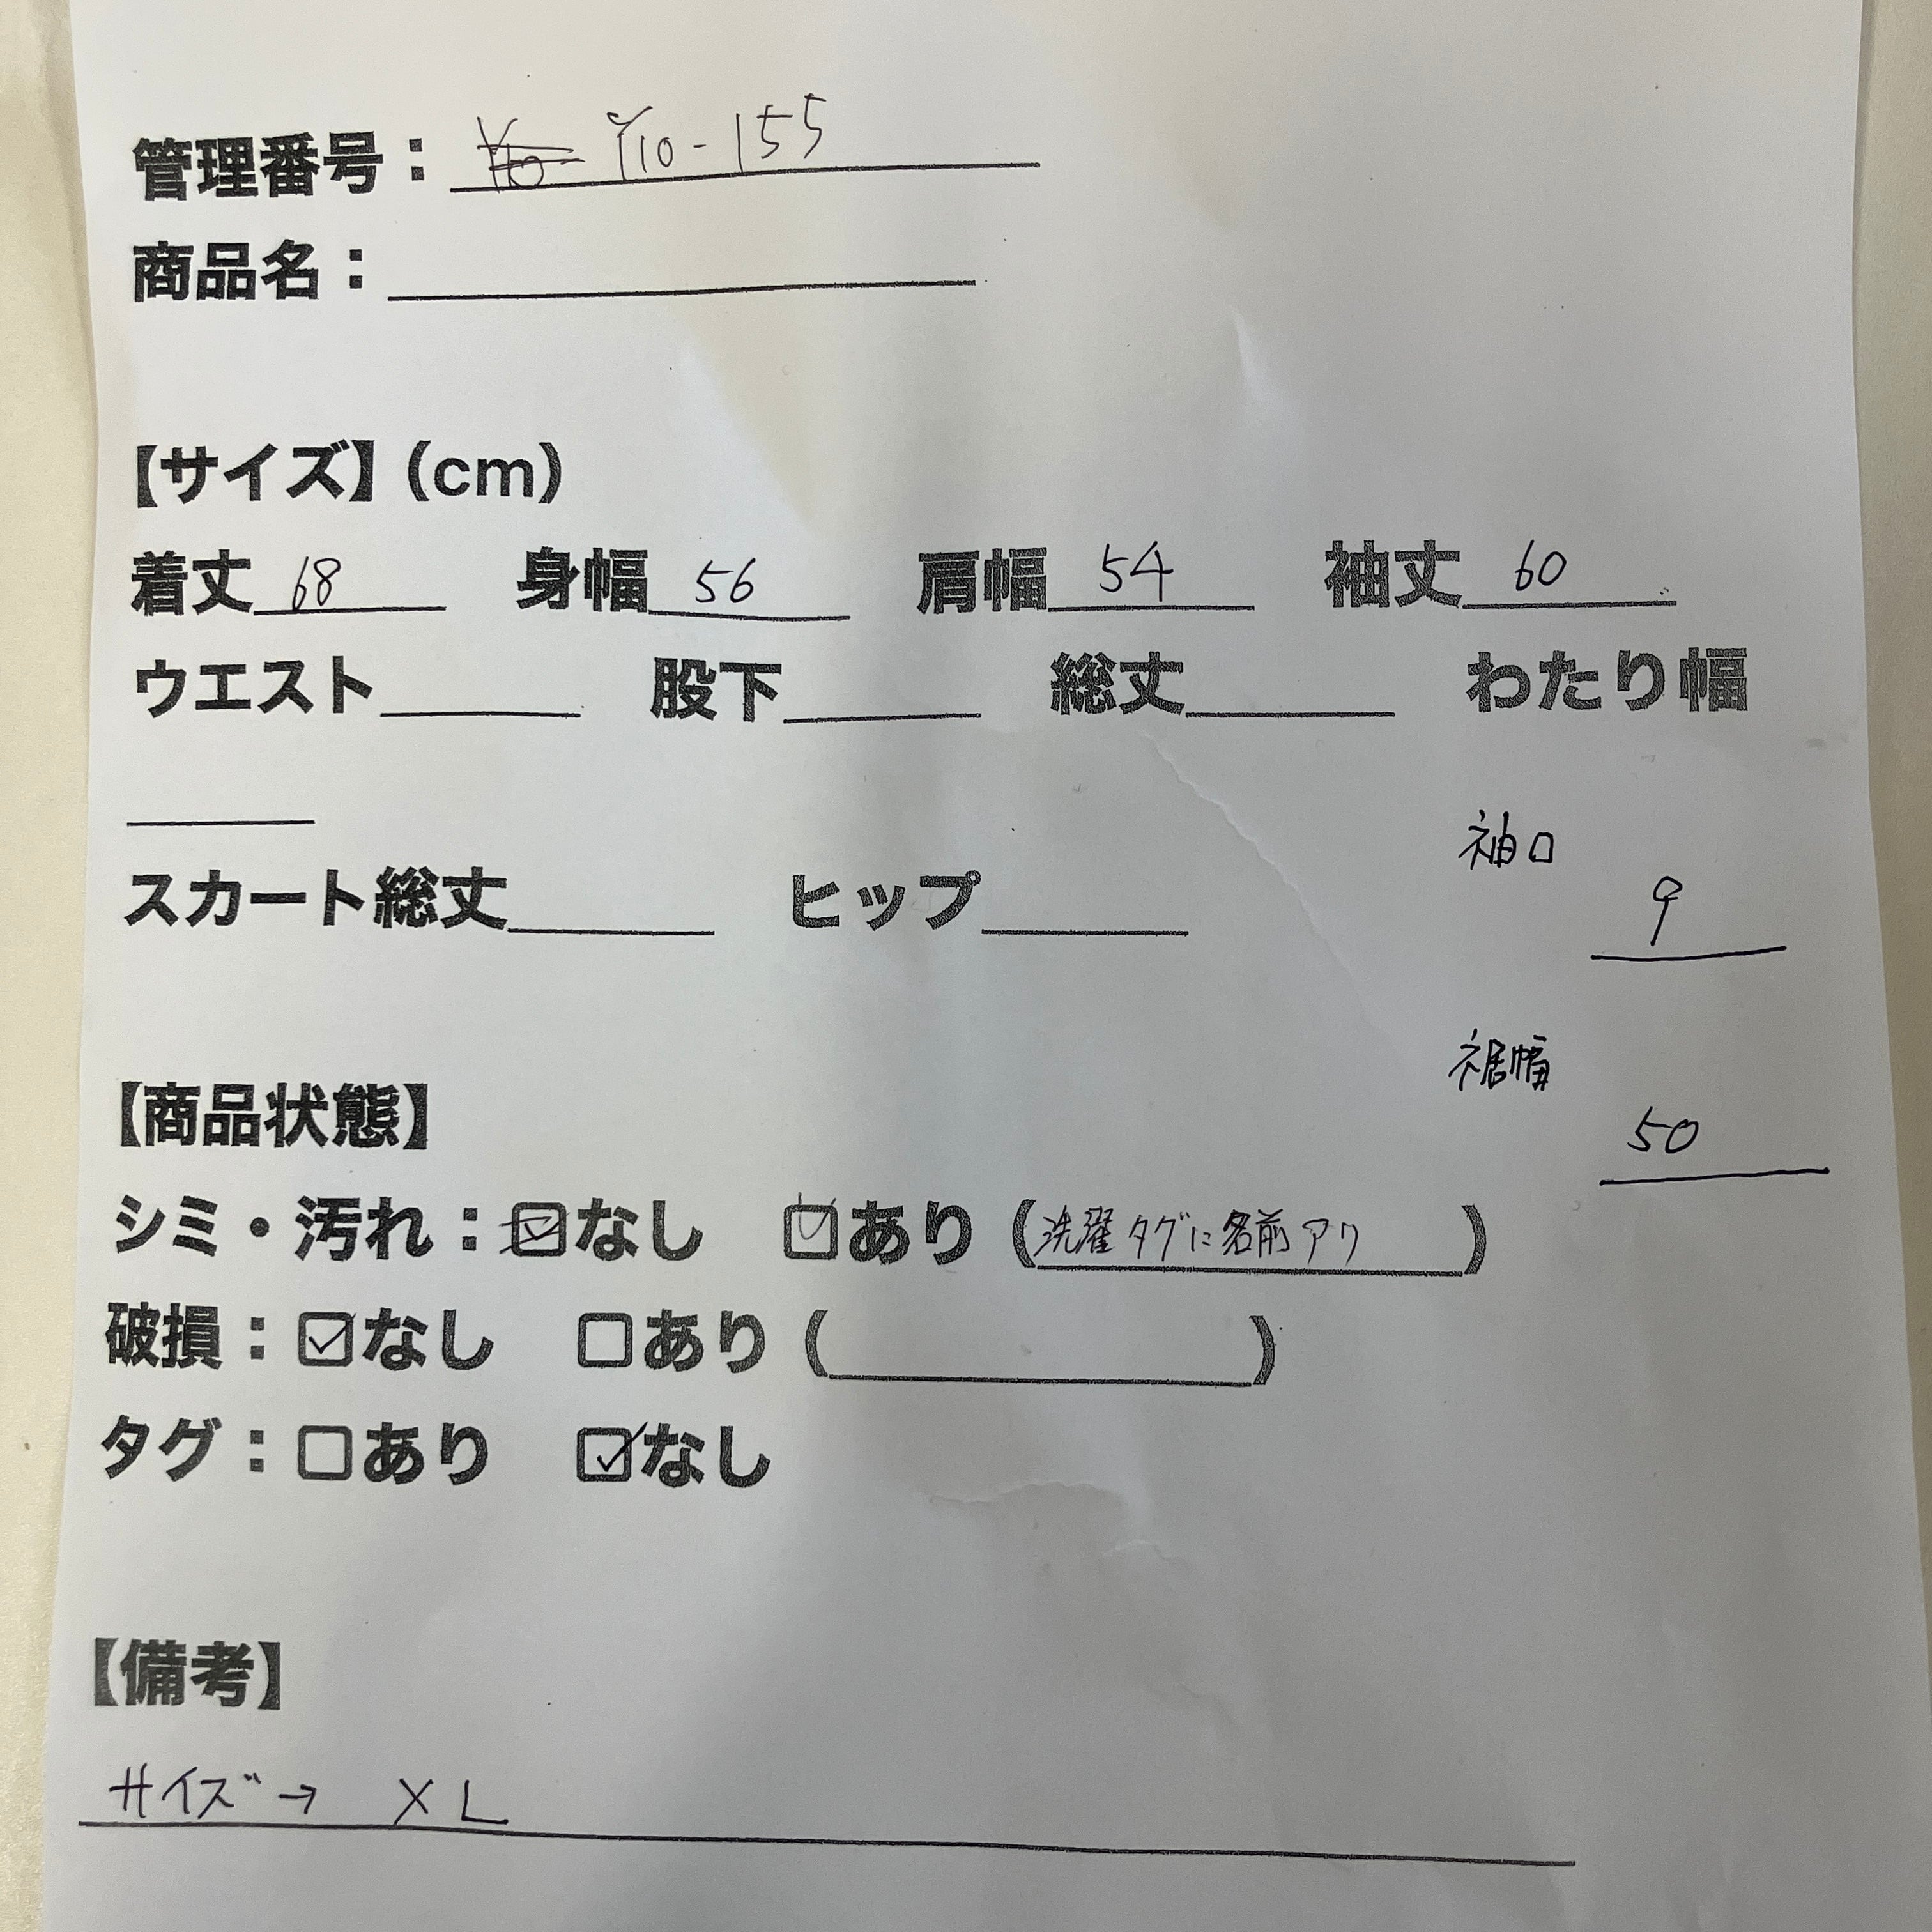 管理番号： Y10-155
商品名：
【サイズ】（cm）
着丈 68 身幅 56 肩幅 54 袖丈 60
ウエスト 股下 総丈 わたり幅
袖口
スカート総丈 ヒップ 9
裾幅
【商品状態】
50
シミ・汚れ：☑なし ☑あり（洗濯タグに名前アリ）
破損：☑なし □あり（ ）
タグ：□あり ☑なし
【備考】
サイズ→ XL